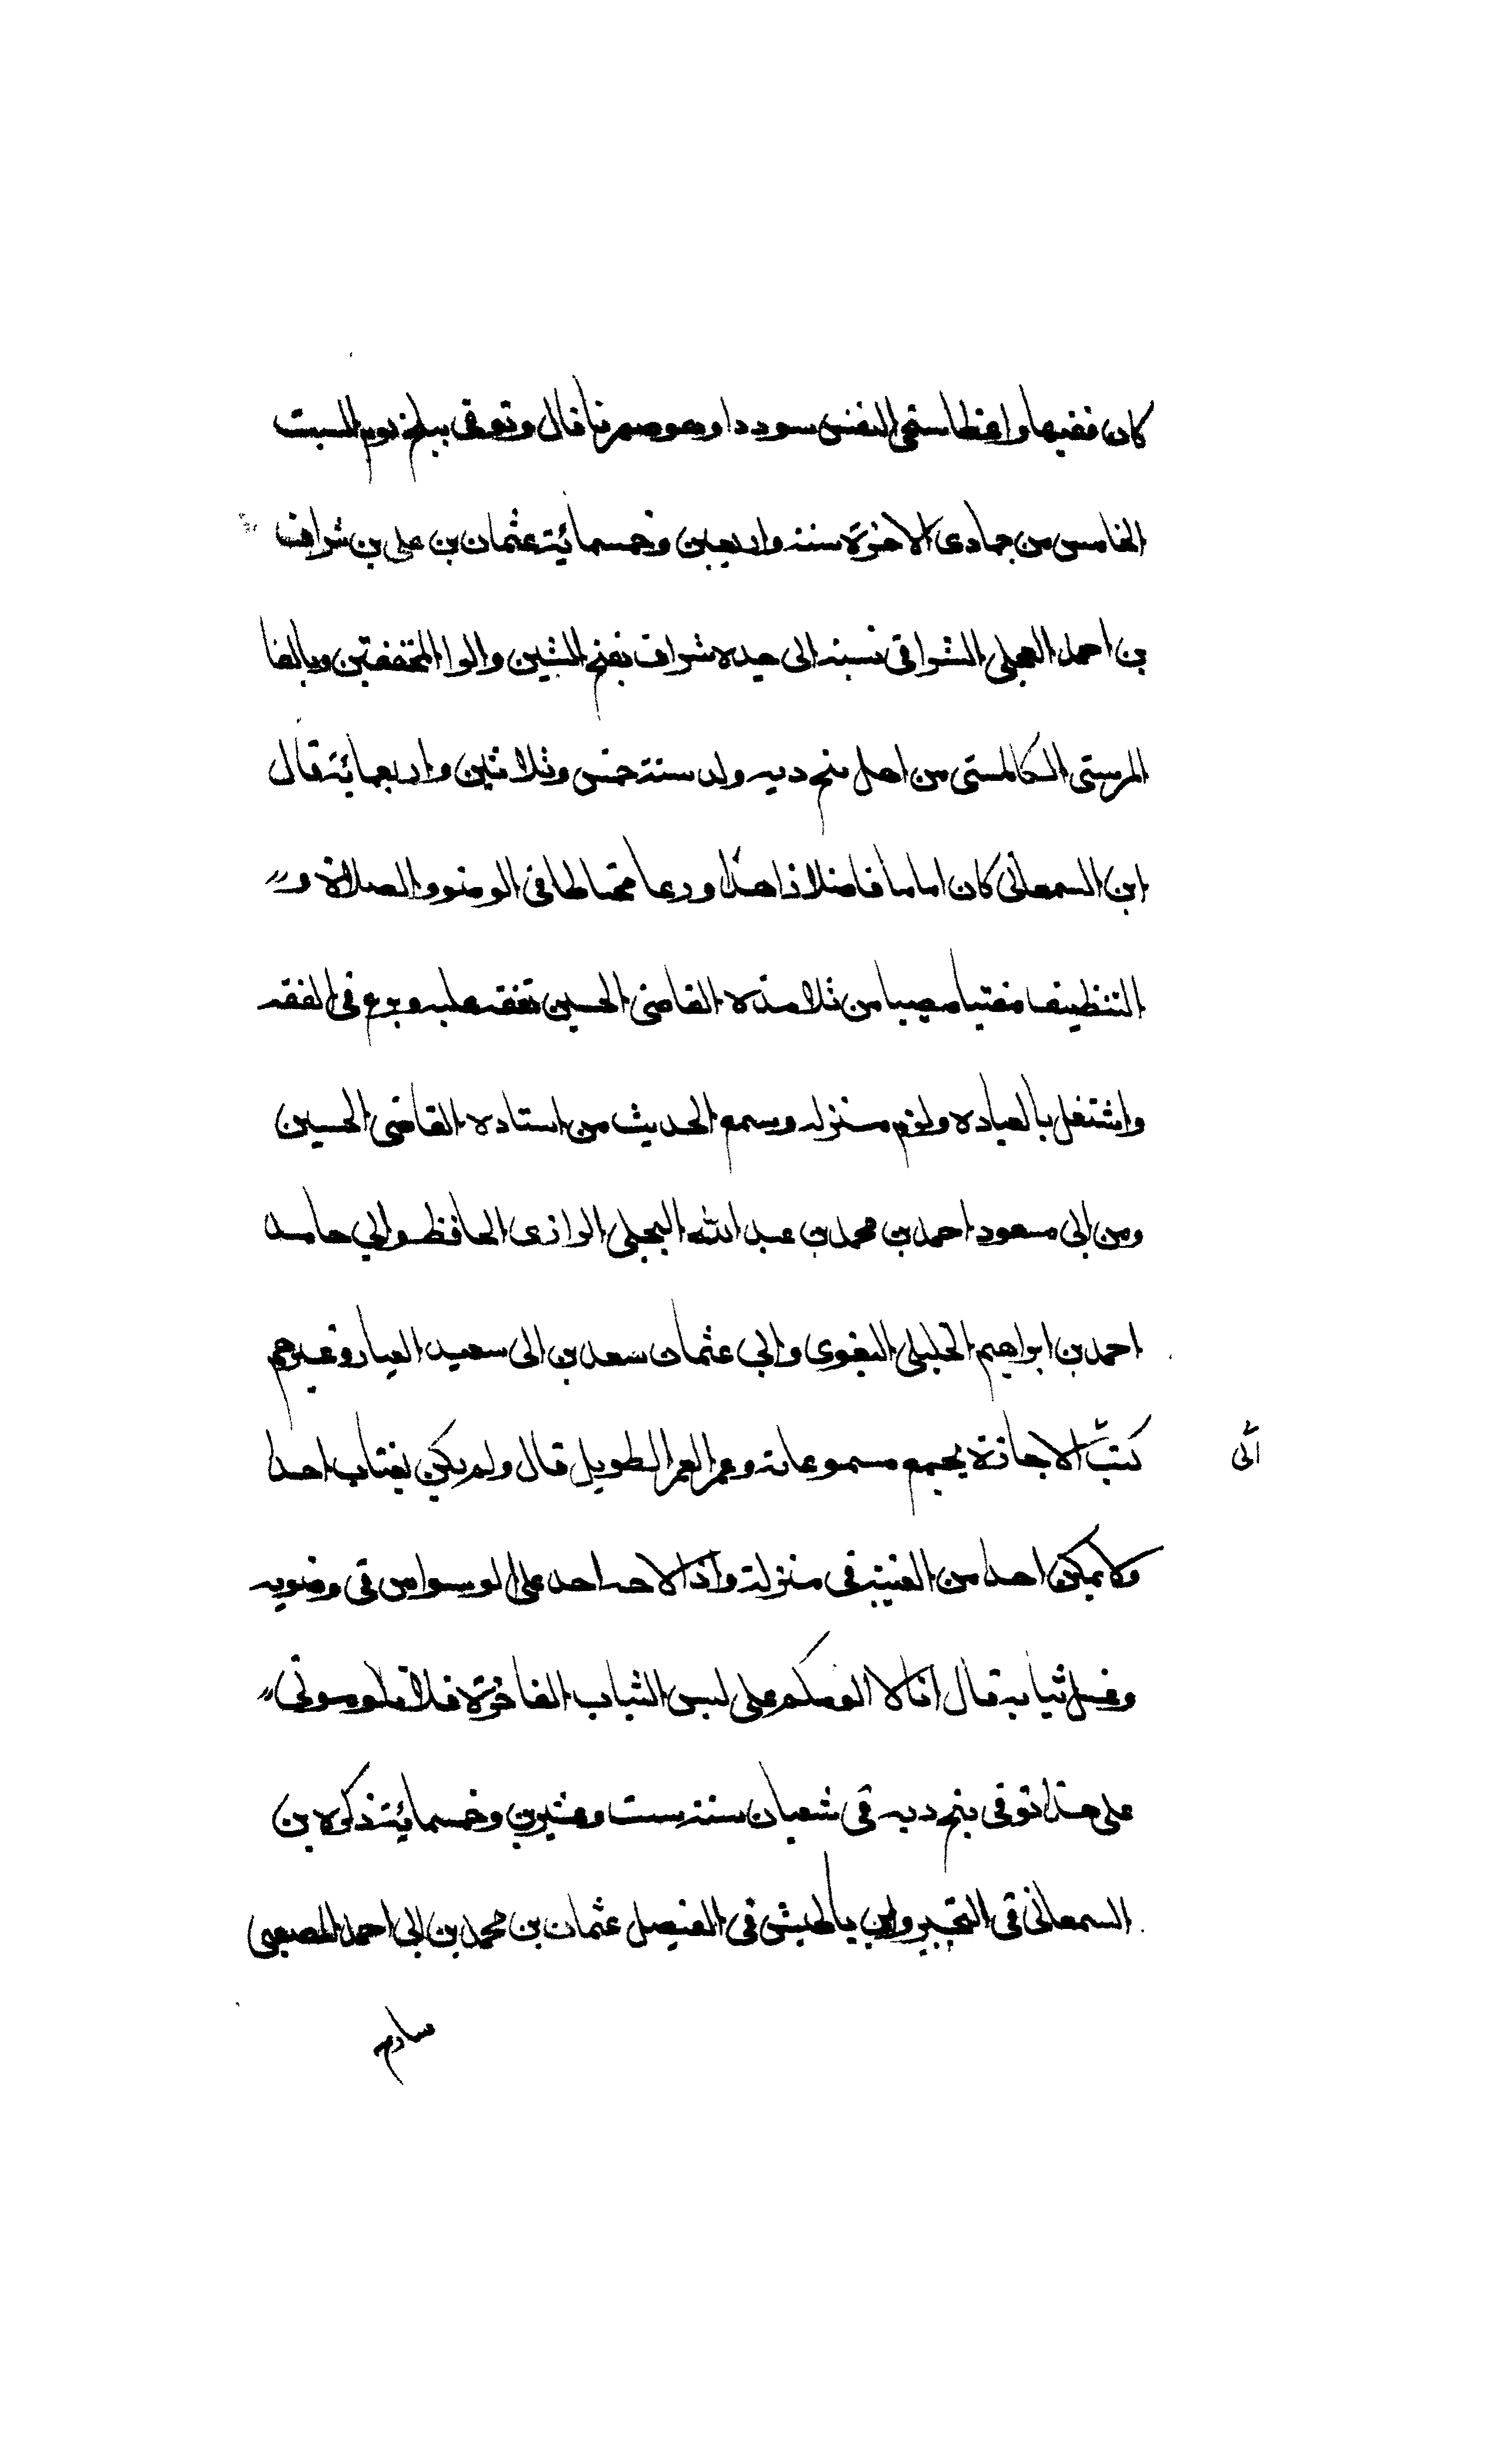 كان فقيها واعظا سخي النفس سوددا وهو صهرنا قال وتوفى ببلخ يوم السبت
الخامس من جمادى الاخرة سنة واربعين وخمسمائة عثمان بن على بن شراف
بن احمد العجلى الشرافى نسبة الى جده شراف بفتح الشين والوا المخففتين وبالفا
المرستى من اهل بنج ديه ولد سنة خمس وثلاثين واربعمائة قال
ابن السمعانى كان اماما فاضلا زاهدا ورعا محتاطا فى الوضوو الصلاة و
التنظيف مفتيا مصيبا من تلامذه القاضى الحسين تفقه عليه وبرع فى الفقه
واشتغل بالعباده ولزم منزله وسمع الحديث من استاده القاضى الحسين
ومن ابى مسعود احمد بن محمد بن عبد الله البجلى الرازى الحافظ وابي حامد
احمد بن ابراهيم الخليلى البغوى وابي عثمان سعد بن ابى سعيد العيار وغيرهم
كتب الاجازة بجمع مسموعاته وعمر العمر الطويل قال ولم يكن يغتاب احدا
الى
ولا يمكن احدا من الغيبة فى منزلة واذا لاحه احد على الوسواس فى وضويه
وغسل ثيابه قال انا لا الومكم على لبس الثياب الفاخرة فلا تلومونى
على هذا توفى بنج ديه فى شعبان سنة ست وعشرين وخمسمائة ذكره بن
السمعانى فى التحبير وابن باطيش فى الفيصل عثمان بن محمد بن ابى احمد المصعبى